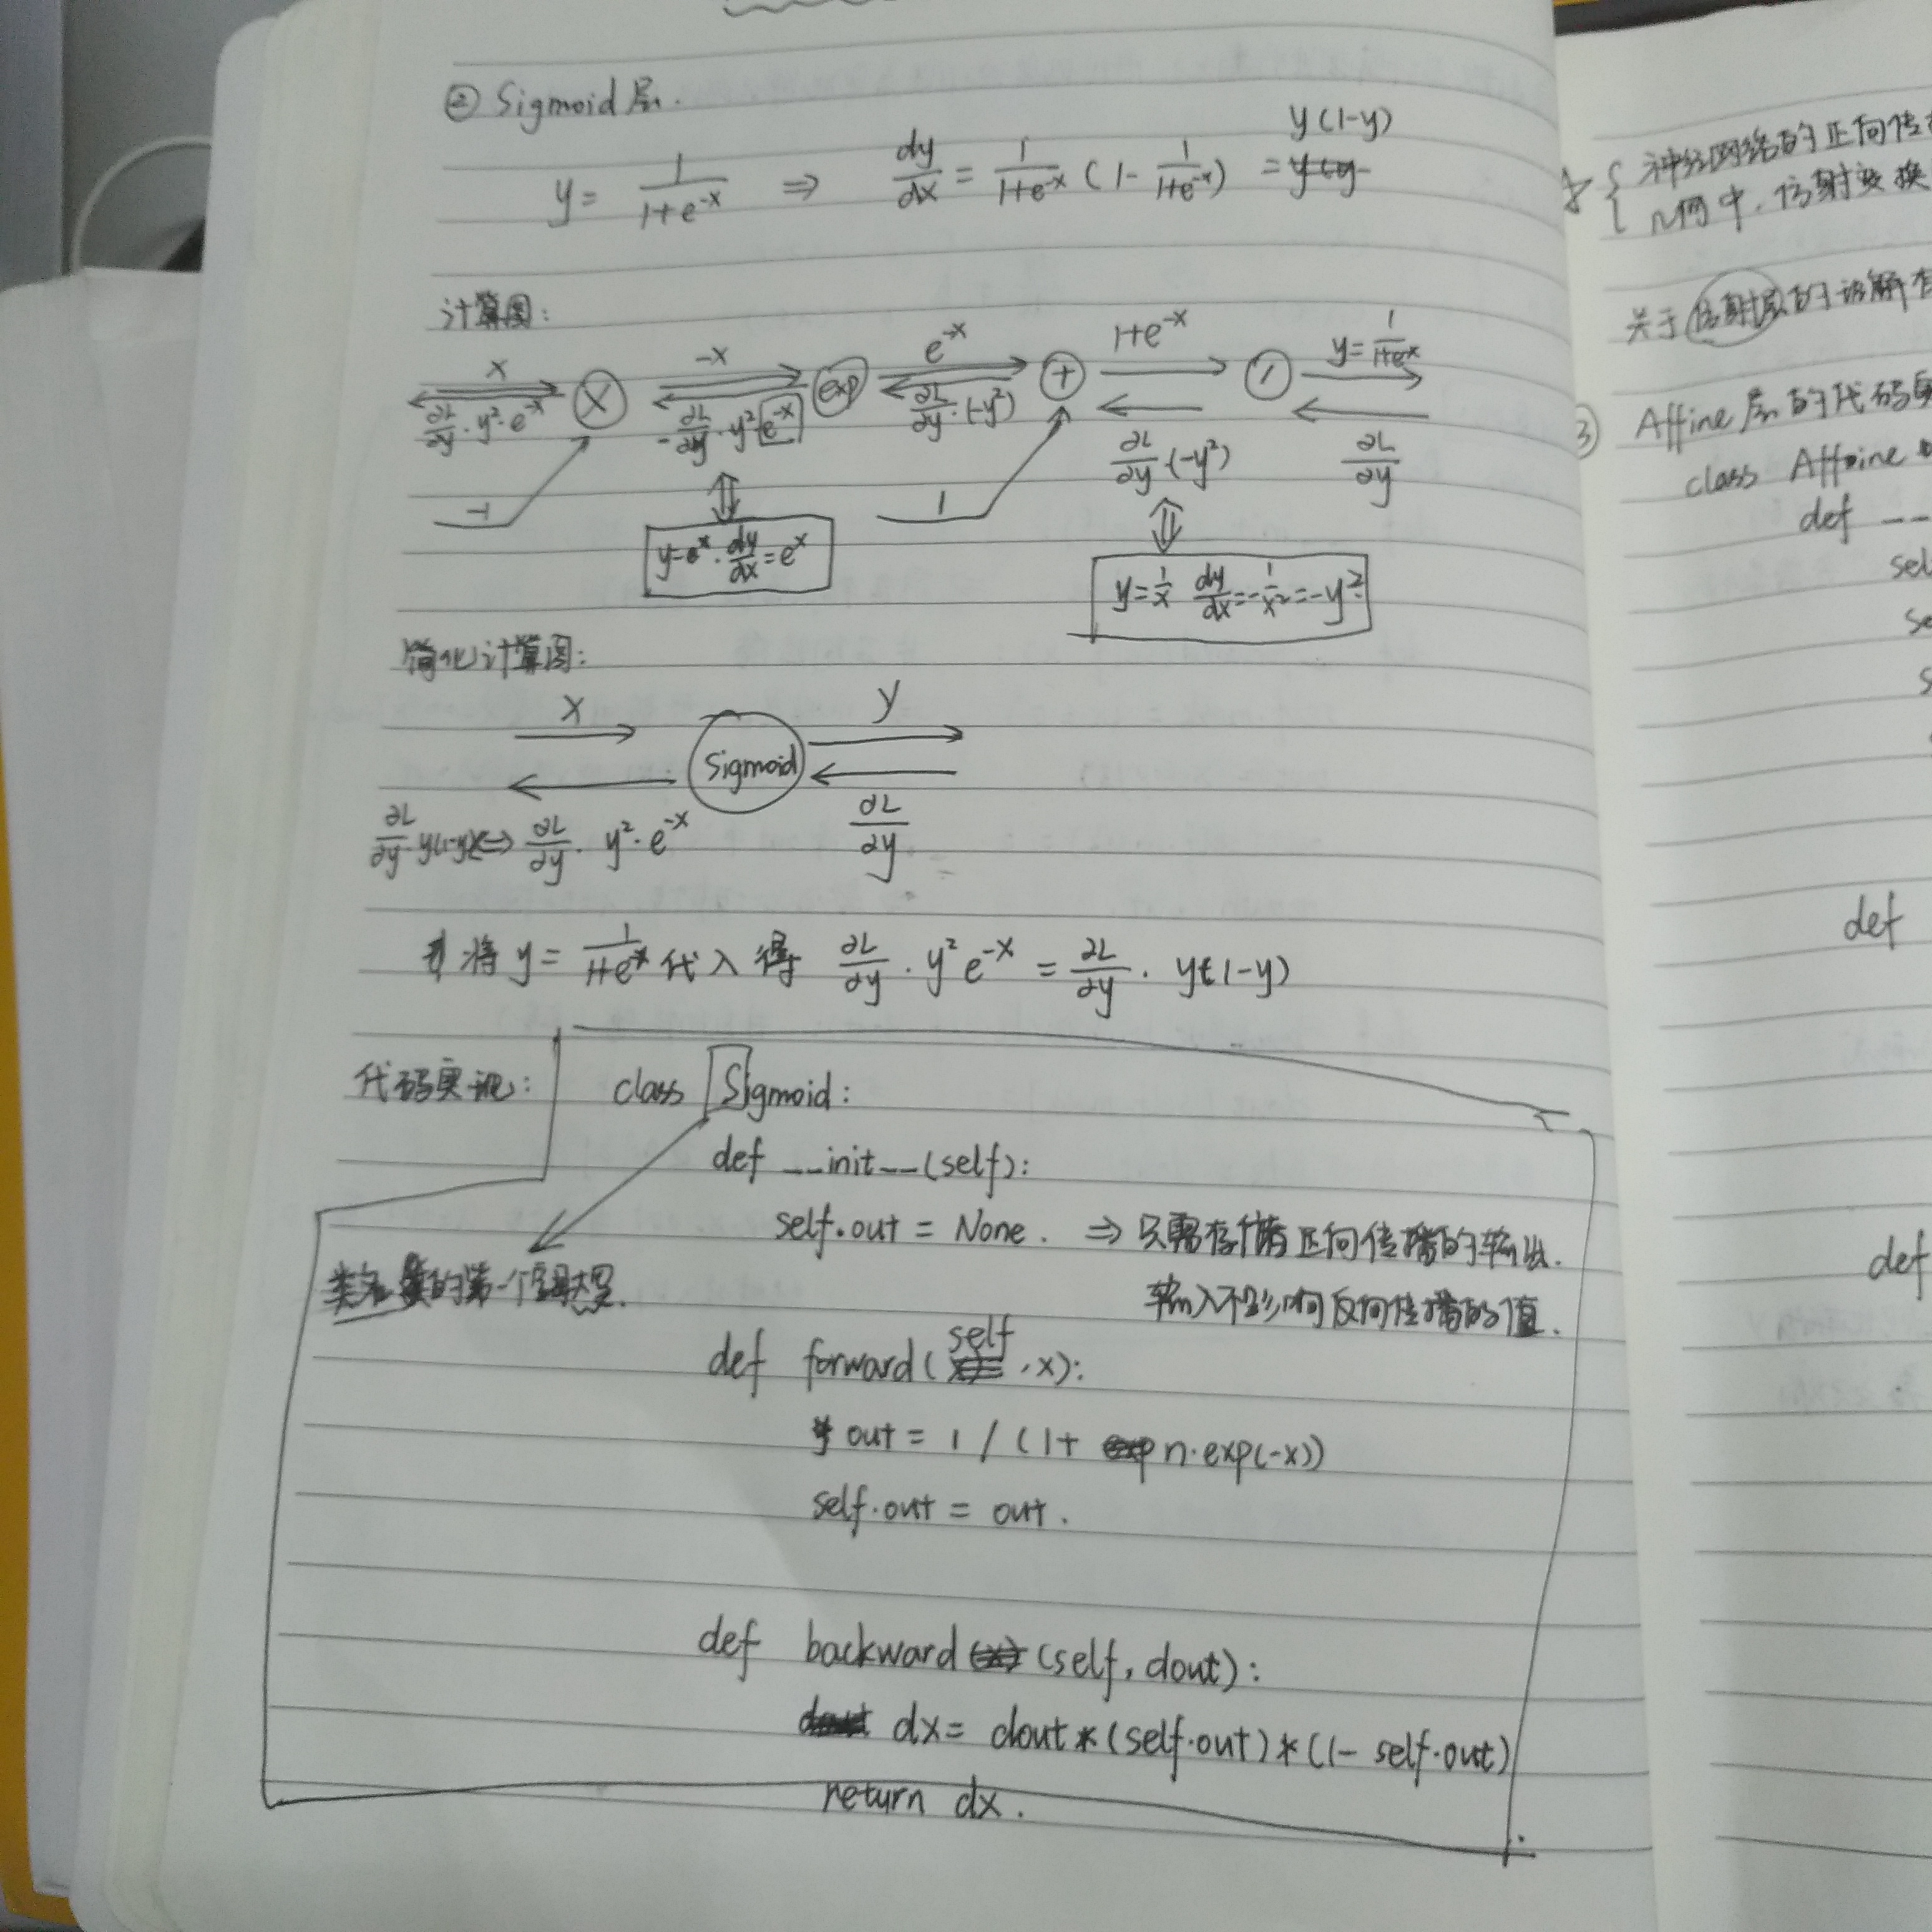 ② Sigmoid层.
y = 1/(1+e^-x) ⇒ dy/dx = 1/(1+e^-x) (1 - 1/(1+e^-x)) = y(1-y)
计算图:
x -x e^-x 1+e^-x y = 1/(1+e^-x)
× exp + /
∂L/∂y · y² · e^-x -∂L/∂y · y² e^-x ∂L/∂y · (-y²) ∂L/∂y · (-y²) ∂L/∂y
-1 1
y=e^x · dy/dx = e^x y = 1/x dy/dx = -1/x² = -y²
简化计算图:
x y
Sigmoid
∂L/∂y · y(1-y) ⇔ ∂L/∂y · y² · e^-x ∂L/∂y
将 y = 1/(1+e^-x) 代入得 ∂L/∂y · y² e^-x = ∂L/∂y · y(1-y)
代码实现: class Sigmoid:
def __init__(self):
self.out = None. ⇒ 只需存储正向传播的输出.
类名的第一个字母大写.
输入不影响反向传播的值.
def forward(self, x):
out = 1 / (1+ n.exp(-x))
self.out = out.
def backward (self, dout):
dx = dout * (self.out) * (1- self.out)
return dx.
神经网络的正向传
几何中, 仿射变换
关于仿射层的讲解
③ Affine 层的代码
class Affine
def __
sel
se
s
def
def